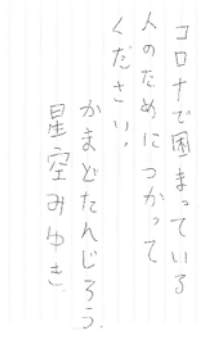 コロナで困まっている
人のためにつかって
ください。
かまどたんじろう
星空みゆき